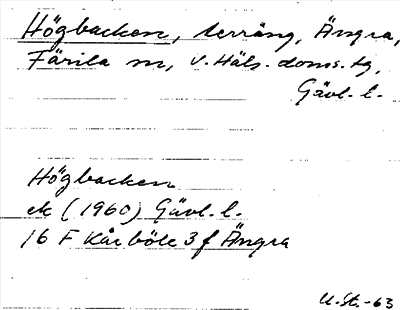 Högbacken, terräng, Ängra,
Färila sn, V. Häls. doms. tg,
Gävl. l.
Högbacken
ek (1960) Gävl. l.
16 F Kårböle 3 f Ängra
U. St. -63